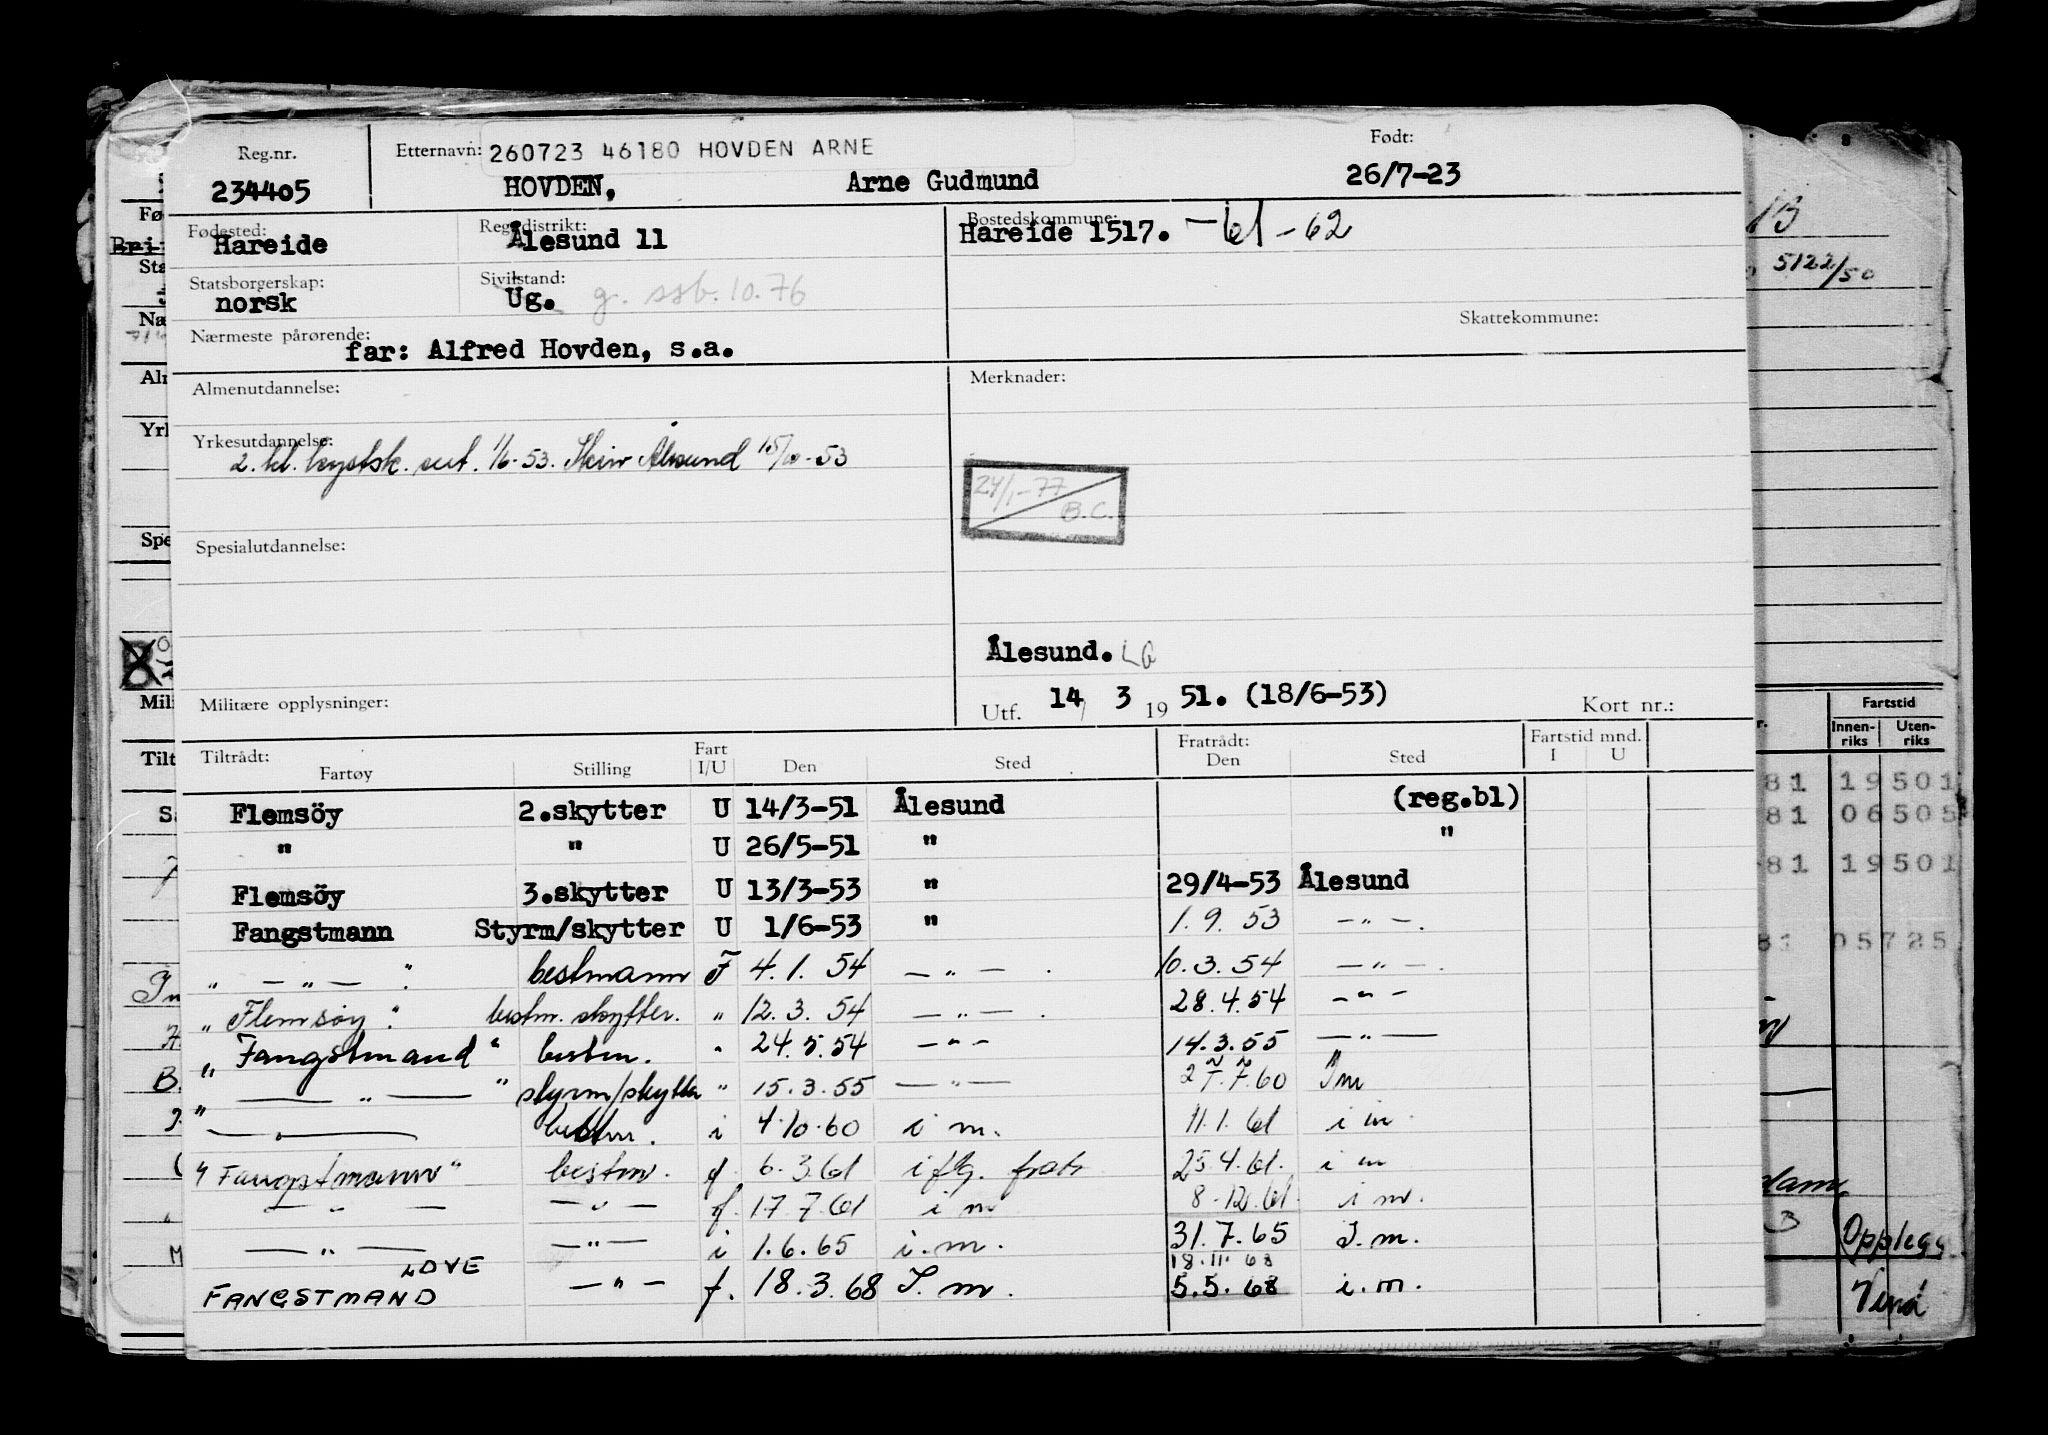 Reg.nr. Etternavn: 260723 46180 HOVDEN ARNE Født:
234405 HOVDEN, Arne Gudmund 26/7-23
Fødested: Reg.distrikt: Bostedskommune:
Hareide Ålesund 11 Hareide 1517. -61-62
Statsborgerskap: Sivilstand:
norsk Ug. g. ssb. 10.76
Nærmeste pårørende: Skattekommune:
far: Alfred Hovden, s.a.
Almenutdannelse: Merknader:
Yrkesutdannelse:
2. kl. kystsk. sert. 1/6-53. Ålesund 53
24/1-77
B.C.
Spesialutdannelse:
Ålesund.
Militære opplysninger: Utf. 14/ 3 19 51. (18/6-53) Kort nr.:
Tiltrådt: Fart Fratrådt: Fartstid mnd.
Fartøy Stilling I/U Den Sted Den Sted I U
Flemsöy 2.skytter U 14/3-51 Ålesund (reg.bl)
" " U 26/5-51 " "
Flemsöy 3.skytter U 13/3-53 " 29/4-53 Ålesund
Fangstmann Styrm/skytter U 1/6-53 " 1.9.53 - " -
" - " - " bestmann F 4.1.54 - " - 10.3.54 - " -
" Flemsöy " bestm. skytter. " 12.3.54 - " - 28.4.54 - " -
" Fangstmand " bestm. " 24.5.54 - " - 14.3.55 - " -
" - " - " styrm/skytter " 15.3.55 - " - 27.7.60 Im
- " - bestm. i 4.10.60 i m. 11.1.61 i m
" Fangstmann " bestm. f 6.3.61 i flg. fratr 25.4.61. i m
- " - - " - f. 17.7.61 i m 8-12.61. i m.
- " - - " - i 1.6.65 i.m. 31.7.65 I.m.
LOVE 18.11.68
FANGSTMAND - " - f. 18.3.68 I.m. 5.5.68 i.m.
5122/50
Fartstid
Innenriks Utenriks
81 19501
81 06505
81 19501
81 05725
Opplegg